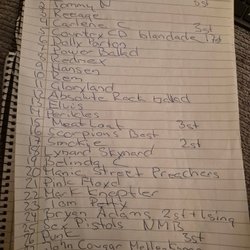 2 Tommy N 5st
3 Reegge
4 Carlene C 3st
5 Country CD Blandade 17st
6 Dolly Parton
7 Power Ballad
8 Rednex
9 Hansen
10 Rem
11 Gloryland
12 Absolute Rock Ballad
13 Elvis
14 Herkules
15 Meat Loaf 3st
16 Scorpions Best
17 Smokie 2st
18 Lynard Skynard
19 Belinda
20 Manic Street Preachers
21 Pink Floyd
22 Mark Knopfler
23 Tom Petty
24 Bryan Adams 2st + 1sing
25 Sex Pistols NMB
26
John Cougar Mellencamp